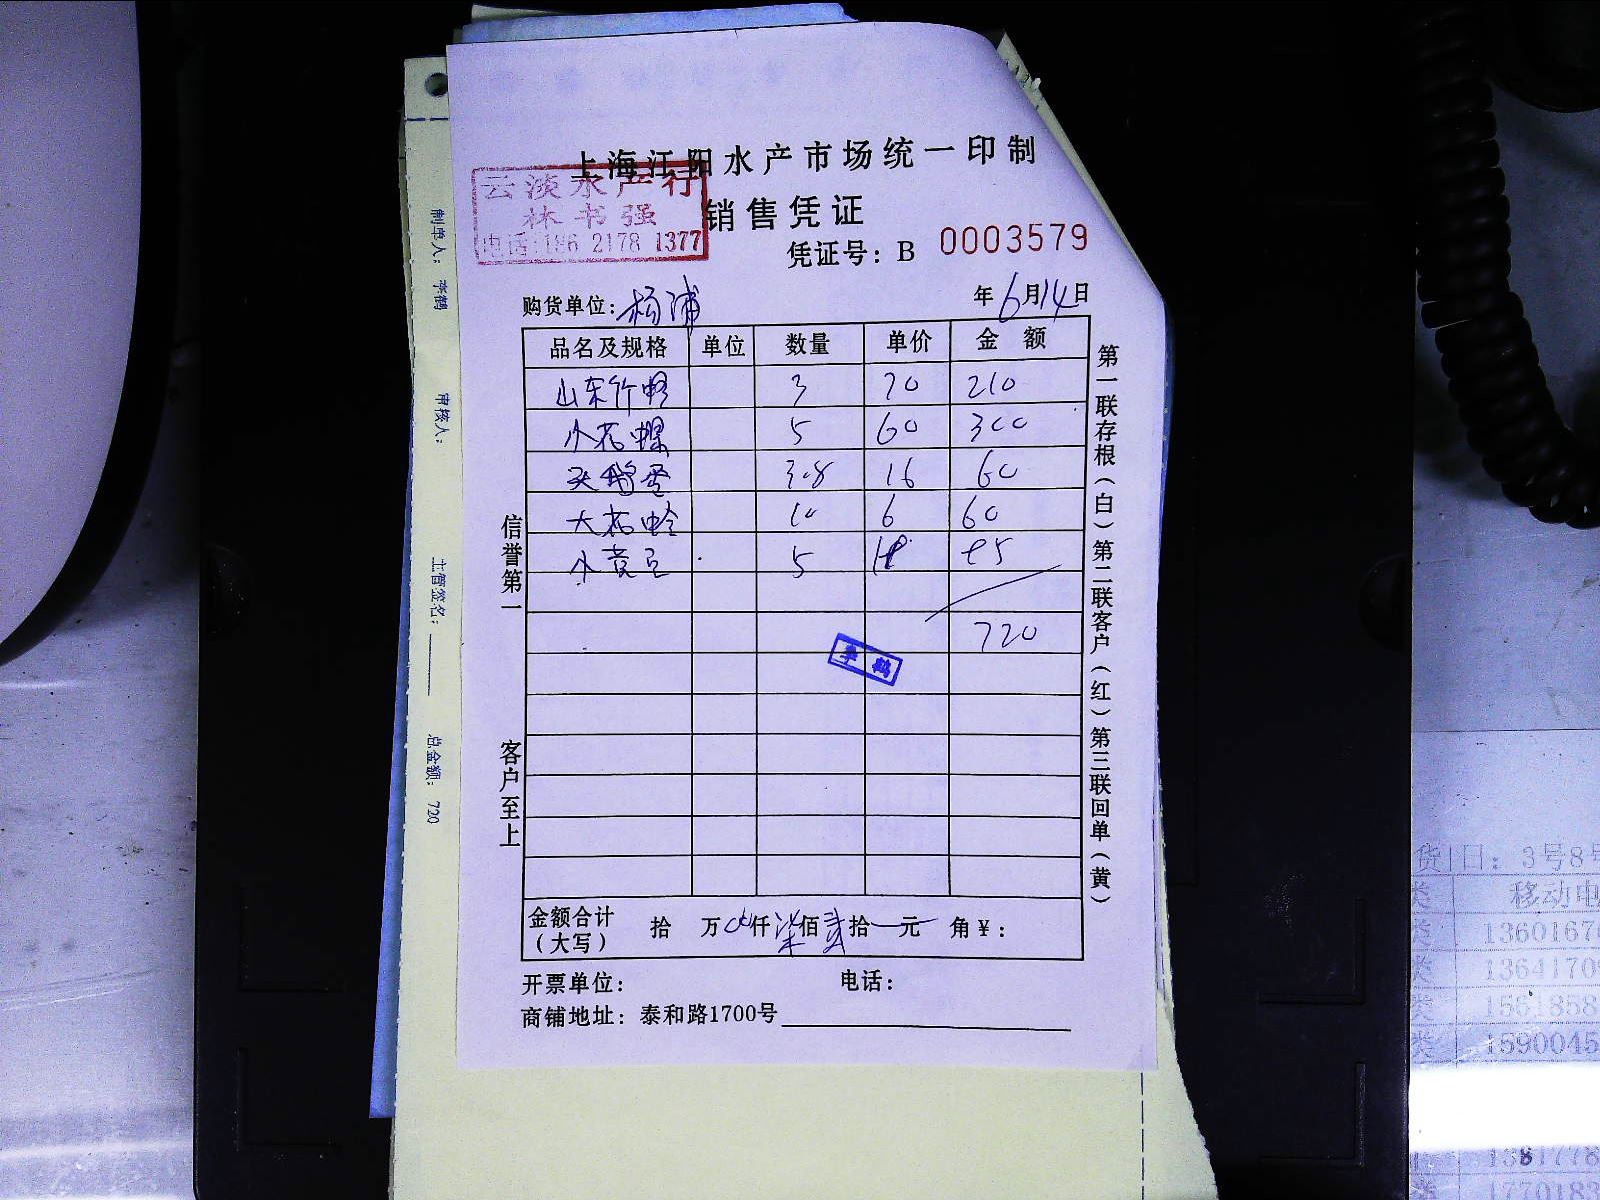 上海江阳水产市场统一印制
云淡水产行
林书强
电话:186 2178 1377
销售凭证
凭证号：B 0003579
购货单位：杨浦
年6月14日
品名及规格 单位 数量 单价 金额
山东竹蛏 3 70 210
小花螺 5 60 300
天鹅蛋 3.8 16 60
大花蛤 10 6 60
小黄豆 5
720
李鹤
金额合计（大写） 拾 万 仟柒佰贰拾 元 角¥：
开票单位： 电话：
商铺地址：泰和路1700号
信誉第一
客户至上
第一联存根（白）第二联客户（红）第三联回单（黄）
制单人：李鹤
审核人：
主管签名：
总金额：720
货 日：3号8号
类 移动电
类 1360167
类 1364170
类 1561858
类 1590045